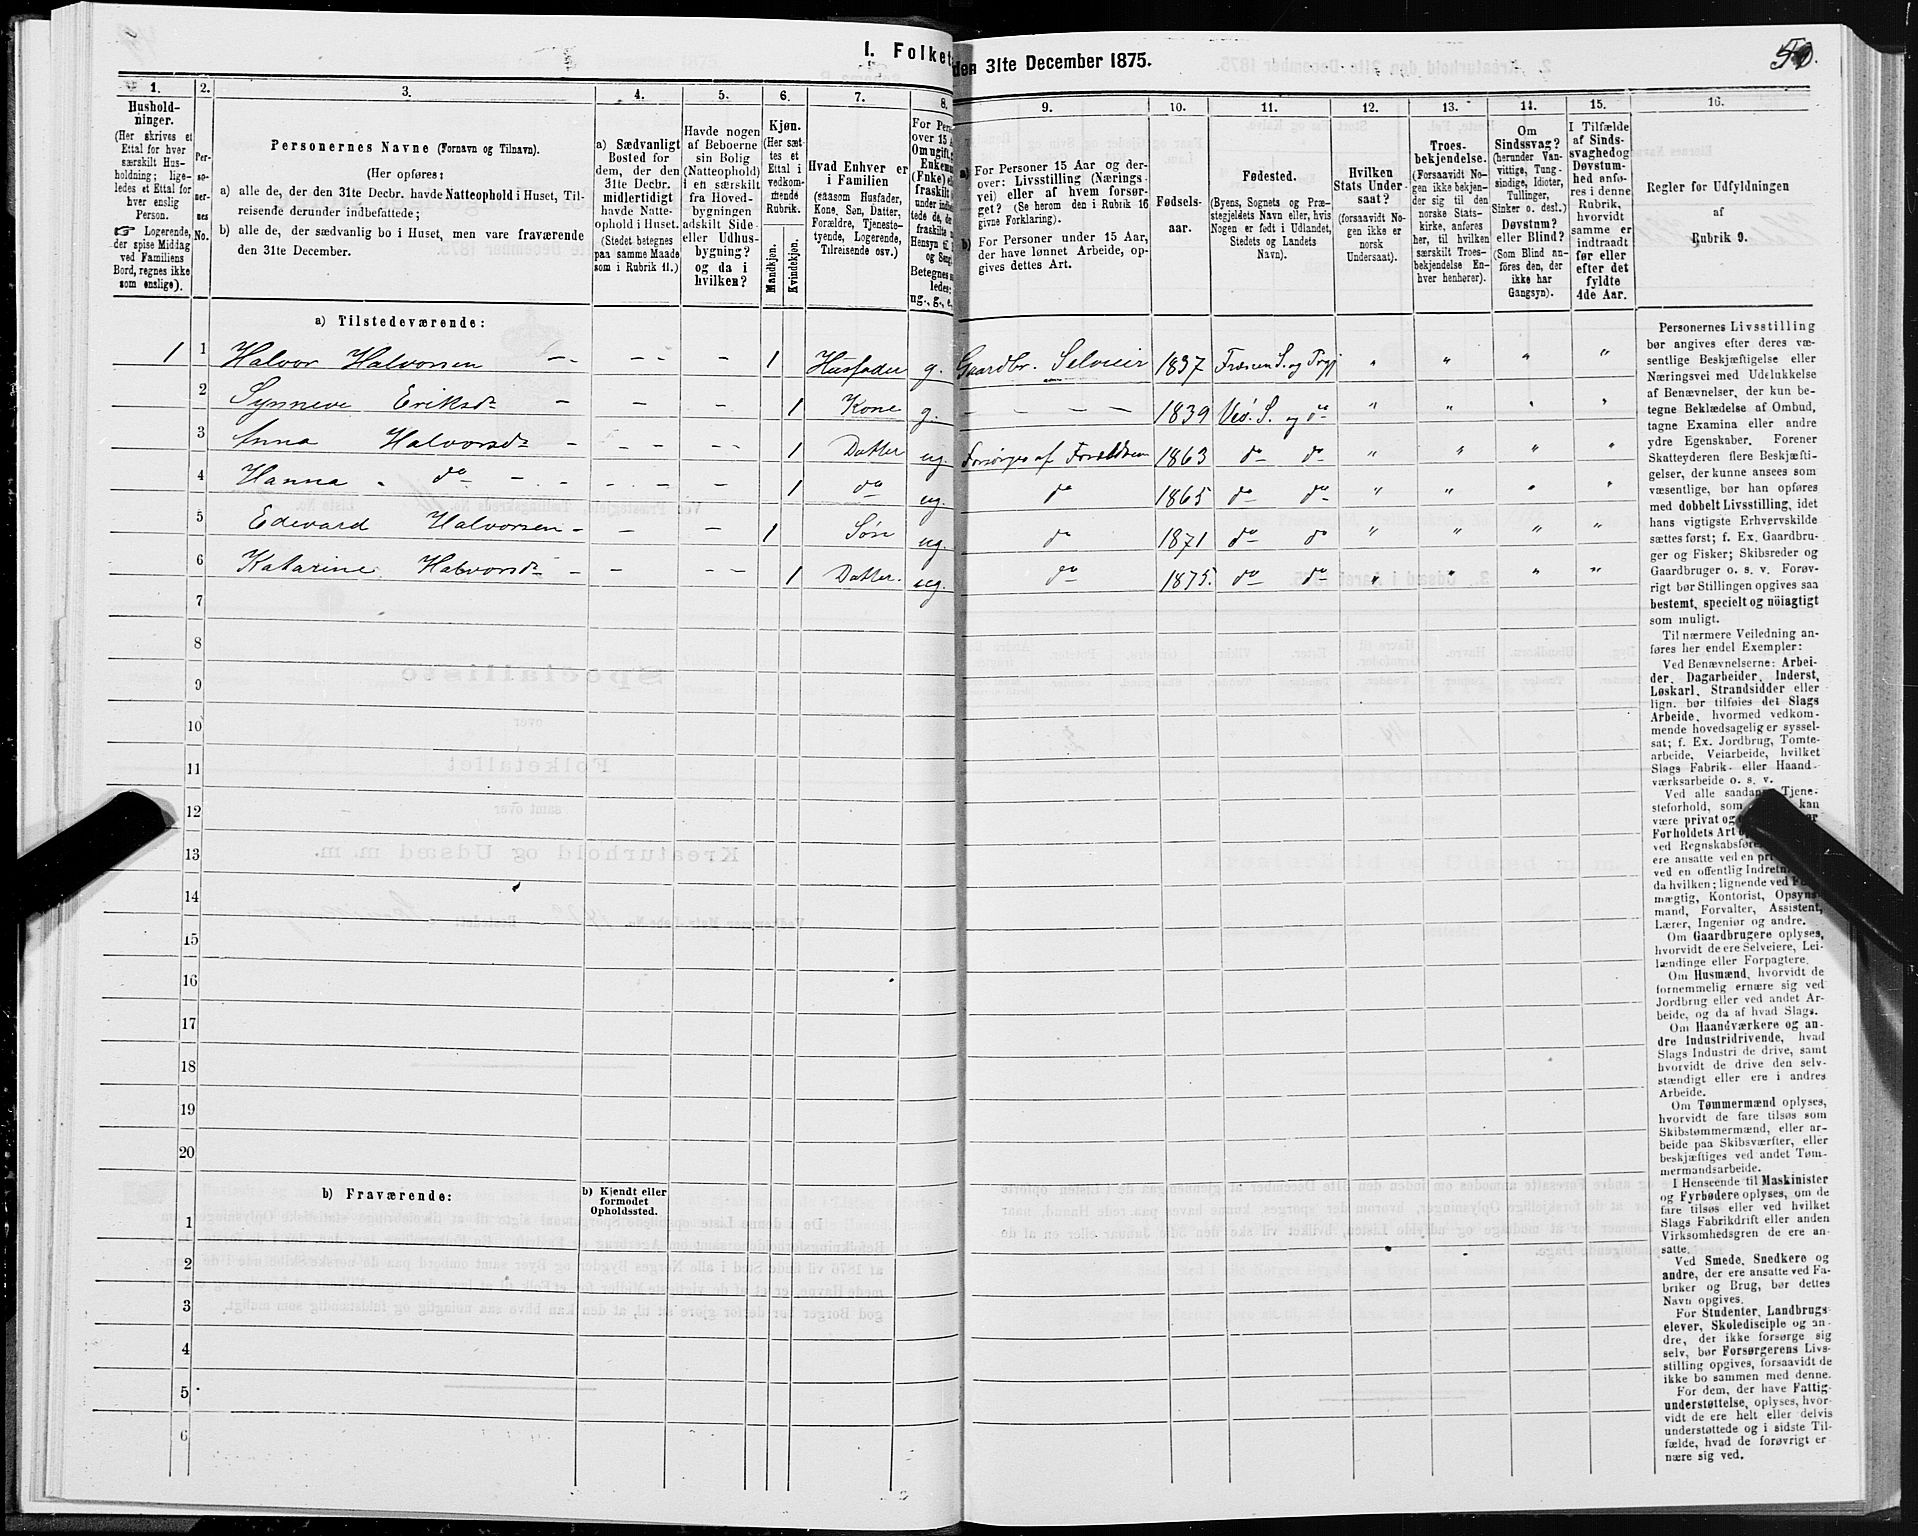 I. Folket
den 31te December 1875.
50.
1.
2.
3.
4.
5.
6.
7.
8.
9.
10.
11.
12.
13.
14.
15.
16.
Hushold-
ninger.
(Her skrives et
Ettal for hver
særskilt Hus-
holdning; lige-
ledes et Ettal for
hver enslig
Person.
☞ Logerende,
der spise Middag
ved Familiens
Bord, regnes ikke
som enslige).
Per-
so-
ner-
nes
No.
Personernes Navne (Fornavn og Tilnavn).
(Her opføres:
a) alle de, der den 31te Decbr. havde Natteophold i Huset, Til-
reisende derunder indbefattede;
b) alle de, der sædvanlig bo i Huset, men vare fraværende
den 31te December.
a) Sædvanligt
Bosted for
dem, der den
31te Decbr.
midlertidigt
havde Natte-
ophold i Huset.
(Stedet betegnes
paa samme Maade
som i Rubrik 11.)
Havde nogen
af Beboerne
sin Bolig
(Natteophold)
i en særskilt
fra Hoved-
bygningen
adskilt Side-
eller Udhus-
bygning?
og da i
hvilken?
Kjøn.
(Her sæt-
tes et
Ettal i
vedkom-
mende
Rubrik.
Mandkjøn.
Kvindekjøn.
Hvad Enhver er
i Familien
(saasom Husfader,
Kone, Søn, Datter,
Forældre, Tjeneste-
tyende, Logerende,
Tilreisende osv.)
For Pers
over 15 A
Om ugift, g
Enkem
(Fnke) el
fraskilt
under indbe
tede de, d
fraskilte
Hensyn til
og Seng
Betegnes s
ledes:
ug., g., e.
a) For Personer 15 Aar og der-
over: Livsstilling (Nærings-
vei) eller af hvem forsør-
get? (Se herom den i Rubrik 16
givne Forklaring).
b) For Personer under 15 Aar,
der have lønnet Arbeide, op-
gives dettes Art.
Fødsels-
aar.
Fødested.
(Byens, Sognets og Præ-
stegjeldets Navn eller, hvis
Nogen er født i Udlandet,
Stedets og Landets
Navn).
Hvilken
Stats Under-
saat?
(forsaavidt No-
gen ikke er
norsk
Undersaat).
Troes-
bekjendelse.
(Forsaavidt No-
gen ikke bekjen-
der sig til den
norske Stats-
kirke, anføres
her, til hvilken
særskilt Troes-
bekjendelse En-
hver henhører).
Om
Sindssvag?
(herunder Van-
vittige, Tung-
sindige, Idioter,
Tullinger,
Sinker o. desl.)
Døvstum?
eller Blind?
(Som Blind an-
føres den, der
ikke har
Gangsyn).
I Tilfælde
af Sinds-
svaghed og
Døvstum-
hed anfø-
res i denne
Rubrik,
hvorvidt
samme er
indtraadt
før eller
efter det
fyldte
4de Aar.
Regler for Udfyldningen
af
Rubrik 9.
a) Tilstedeværende:
1 1 Halvor Halvorsen - - - - - 1 Husfader g. Gaardbr. Selveier 1837 Fræsen S. og Prgj " " " "
2 Synneve Eriksdr - - - 1 Kone g. - - - - 1839 Veø. S. og do " " " "
3 Anna Halvorsdr - - - - 1 Datter ug. Forsørges af Forældrene 1863 do do " " " "
4 Hanna " do - - - - - 1 do ug. do 1865 do do " " " "
5 Edevard Halvorsen - - - 1 Søn ug. do 1871 do do " " " "
6 Katarine Halvorsdr - - - 1 Datter. ug. do 1875. do do " " " "
7
8
9
10
11
12
13
14
15
16
17
18
19
20
b) Fraværende:
b) Kjendt eller
formodet
Opholdssted.
1
2
3
4
5
6
Personernes Livsstilling
bør angives efter deres væ-
sentlige Beskjæftigelse eller
Næringsvei med Udelukkelse
af Benævnelser, der kun be-
tegne Beklædelse af Ombud,
tagne Examina eller andre
ydre Egenskaber. Forener
Skatteyderen flere Beskjæfti-
gelser, der kunne ansees som
væsentlige, bør han opføres
med dobbelt Livsstilling, idet
hans vigtigste Erhvervskilde
sættes først; f. Ex. Gaardbru-
ger og Fisker; Skibsreder og
Gaardbruger o. s. v. Forøv-
rigt bør Stillingen opgives saa
bestemt, specielt og nöiagtigt
som muligt.
Til nærmere Veiledning an-
føres her endel Exempler:
Ved Benævnelserne: Arbei-
der, Dagarbeider, Inderst,
Løskarl, Strandsidder eller
lign. bør tilføies det Slags
Arbeide, hvormed vedkom-
mende hovedsagelig er syssel-
sat; f. Ex. Jordbrug, Tomte-
arbeide, Veiarbeide, hvilket
Slags Fabrik- eller Haand-
værksarbeide o. s. v.
Ved alle saadan Tjene-
steforhold, som kan
være privat og
Forholdets Art
ved Regnskabsfø
ere ansatte ved en pr
ved en offentlig Indretn
da hvilken; lignende ved F
mægtig, Kontorist, Opsyns-
mand, Forvalter, Assistent,
Lærer, Ingeniør og andre.
Om Gaardbrugere oplyses,
hvorvidt de ere Selveiere, Lei-
lændinge eller Forpagtere.
Om Husmænd, hvorvidt de
fornemmelig ernære sig ved
Jordbrug eller ved andet Ar-
beide, og da af hvad Slags.
Om Haandværkere og an-
dre Industridrivende, hvad
Slags Industri de drive, samt
hvorvidt de drive den selv-
stændigt eller ere i andres
Arbeide.
Om Tømmermænd oplyses,
hvorvidt de fare tilsøs som
Skibstømmermænd, eller ar-
beide paa Skibsværfter, eller
beskjæftiges ved andet Tøm-
mermandsarbeide.
I Henseende til Maskinister
og Fyrbødere oplyses, om de
fare tilsøs eller ved hvilket
Slags Fabrikdrift eller anden
Virksomhedsgren de ere an-
satte.
Ved Smede, Snedkere og
andre, der ere ansatte ved Fa-
briker og Brug, bør dettes
Navn opgives.
For Studenter, Landbrugs-
elever, Skoledisciple og an-
dre, der ikke forsørge sig
selv, bør Forsørgerens Livs-
stilling opgives, forsaavidt de
ikke bo sammen med denne.
For dem, der have Fattig-
understøttelse, oplyses, hvor-
vidt de ere helt eller delvis
understøttede og i sidste Til-
fælde, hvad de forøvrigt er-
nære sig ved.